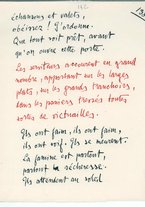 échansons et valets,
obéissez ! J'ordonne.
Que tout soit prêt, avant
qu'on ouvre cette porte.
Les serviteurs accourent en grand
nombre, apportant sur les larges
plats, sur les grands tranchoirs,
dans les paniers tressés toutes
sortes de victuailles.
Ils ont faim, ils ont faim,
ils ont soif. Ils se meurent.
La famine est partout,
partout la sécheresse.
Ils attendent au soleil